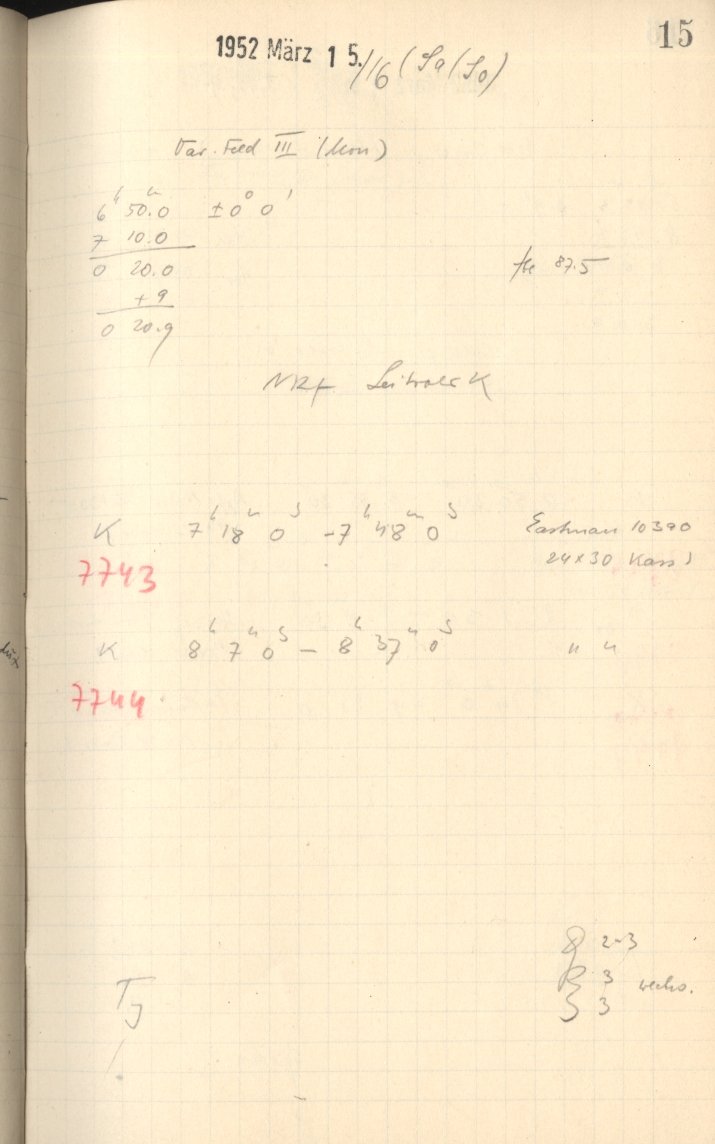 15
1952 März 1 5./16 (Sa/So)
Var. Feld III (Mon)
6ʰ 50.0ᵐ ±0° 0'
7 10.0
0 20.0
+ 9
0 20.9
87.5
K 7ʰ 18ᵐ 0ˢ - 7ʰ 48ᵐ 0ˢ Eastman 10390
24x30 Kass
7743
K 8ʰ 7ᵐ 0ˢ — 8ʰ 37ᵐ 0ˢ " "
7744
2-3
3 wechs.
3